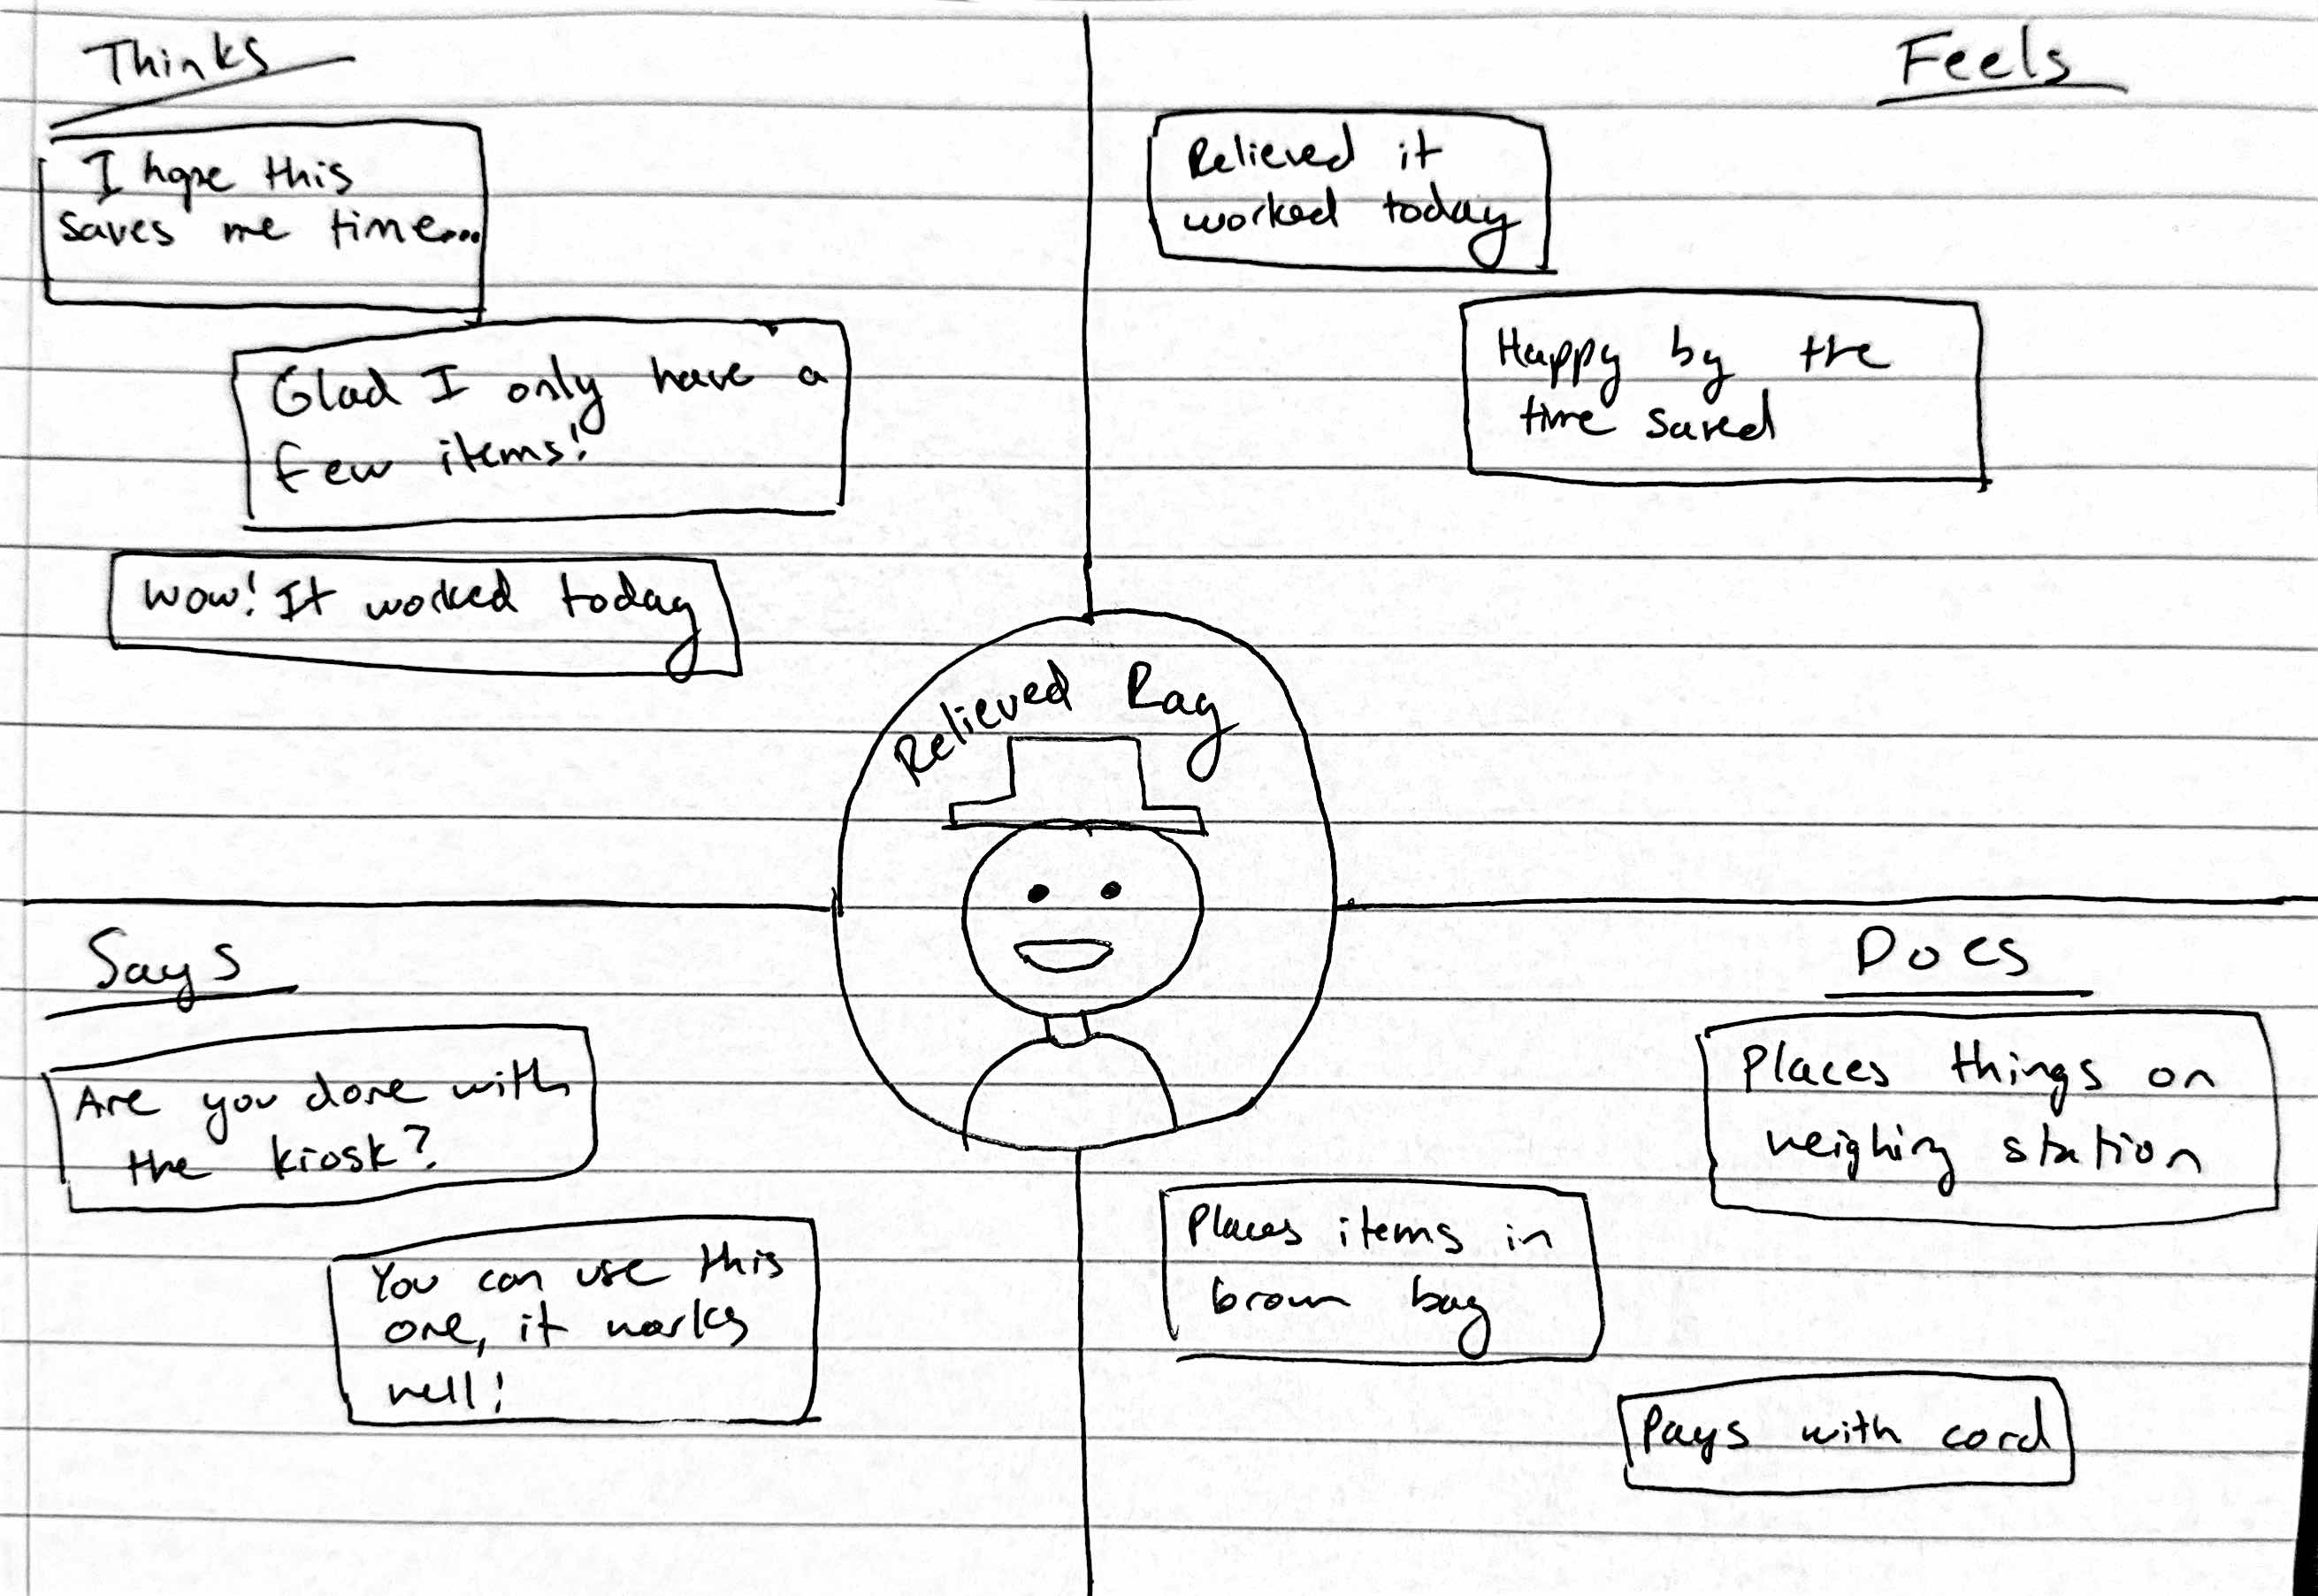 Thinks
I hope this
saves me time...
Glad I only have a
few items!
Wow! It worked today
Feels
Relieved it
worked today
Happy by the
time saved
Relieved Ray
Says
Are you done with
the kiosk?
You can use this
one, it works
well!
Does
Places things on
weighing station
Places items in
brown bag
Pays with card